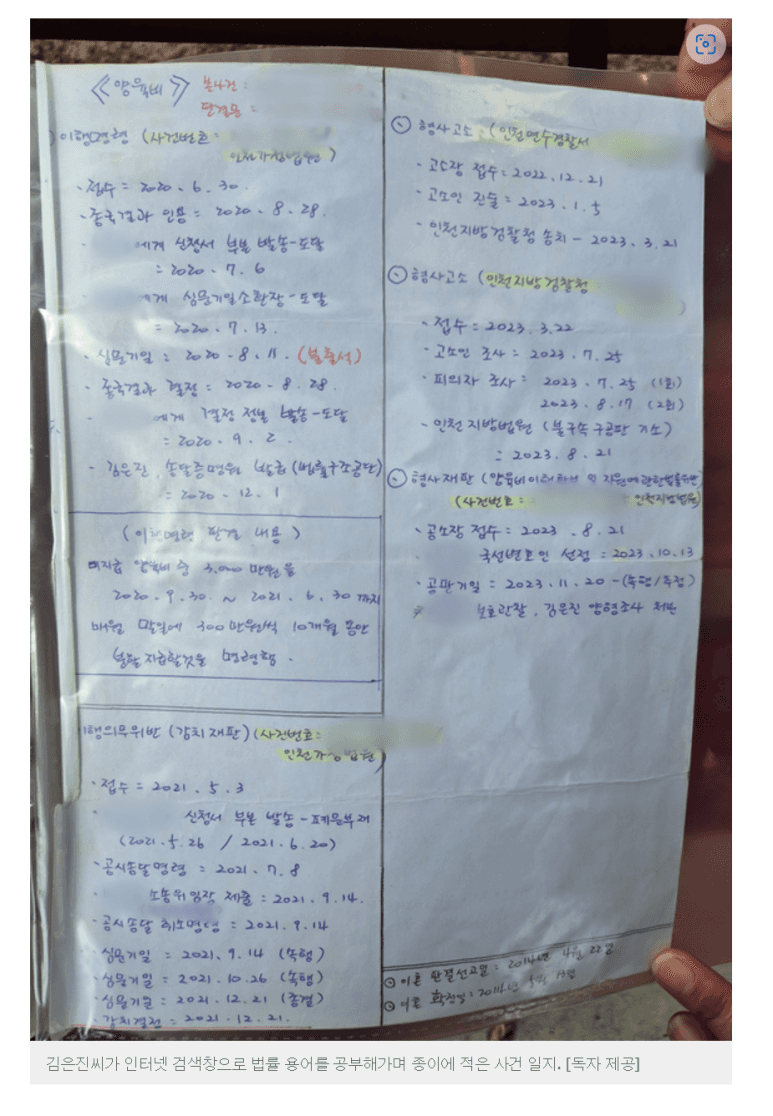 ≪양육비≫ 본사건 :
판결문 :
이행명령 (사건번호 =
인천가정법원)
· 접수 = 2020. 6. 30.
· 종국결과 인용 = 2020. 8. 28.
에게 신청서 부본 발송-도달
= 2020. 7. 6
에게 심문기일소환장-도달
= 2020. 7. 13.
· 심문기일 = 2020. 8. 11. (불출석)
· 종국결과 결정 = 2020. 8. 28.
에게 결정 정본 발송-도달
= 2020. 9. 2.
· 김은진, 송달증명원 발급 (법률구조공단)
= 2020. 12. 1
(이행명령 판결 내용)
미지급 양육비 중 3,000만원을
2020. 9. 30. ~ 2021. 6. 30 까지
매월 말일에 300만원씩 10개월 동안
분할지급할것을 명령함.
행의무위반 (감치재판) (사건번호 :
인천가정법원)
· 접수 = 2021. 5. 3
신청서 부본 발송-폐문부재
(2021. 5. 26 / 2021. 6. 20)
· 공시송달명령 = 2021. 7. 8
소송위임장 제출 = 2021. 9. 14.
· 공시송달 취소명령 = 2021. 9. 14
· 심문기일 = 2021. 9. 14 (속행)
· 심문기일 = 2021. 10. 26 (속행)
· 심문기일 = 2021. 12. 21 (종결)
· 감치결정 = 2021. 12. 21.
⊙ 형사고소 : (인천연수경찰서
· 고소장 접수 = 2022. 12. 21
· 고소인 진술 = 2023. 1. 5
· 인천지방검찰청 송치 - 2023. 3. 21
⊙ 형사고소 (인천지방검찰청
)
· 접수 = 2023. 3. 22
· 고소인 조사 = 2023. 7. 25
· 피의자 조사 = 2023. 7. 25 (1회)
2023. 8. 17 (2회)
· 인천지방법원 (불구속 구공판 기소)
= 2023. 8. 21
⊙ 형사재판 (양육비이행확보 및 지원에관한법률위반)
(사건번호 = 인천지방법원)
· 공소장 접수 = 2023. 8. 21
국선변호인 선정 = 2023. 10. 13
· 공판기일 = 2023. 11. 20 - (속행/추정)
보호관찰, 김은진 양형조사
⊙ 이혼 판결선고일 = 2014년 4월 22일
⊙ 이혼 확정일 : 2014년
김은진씨가 인터넷 검색창으로 법률 용어를 공부해가며 종이에 적은 사건 일지. [독자 제공]